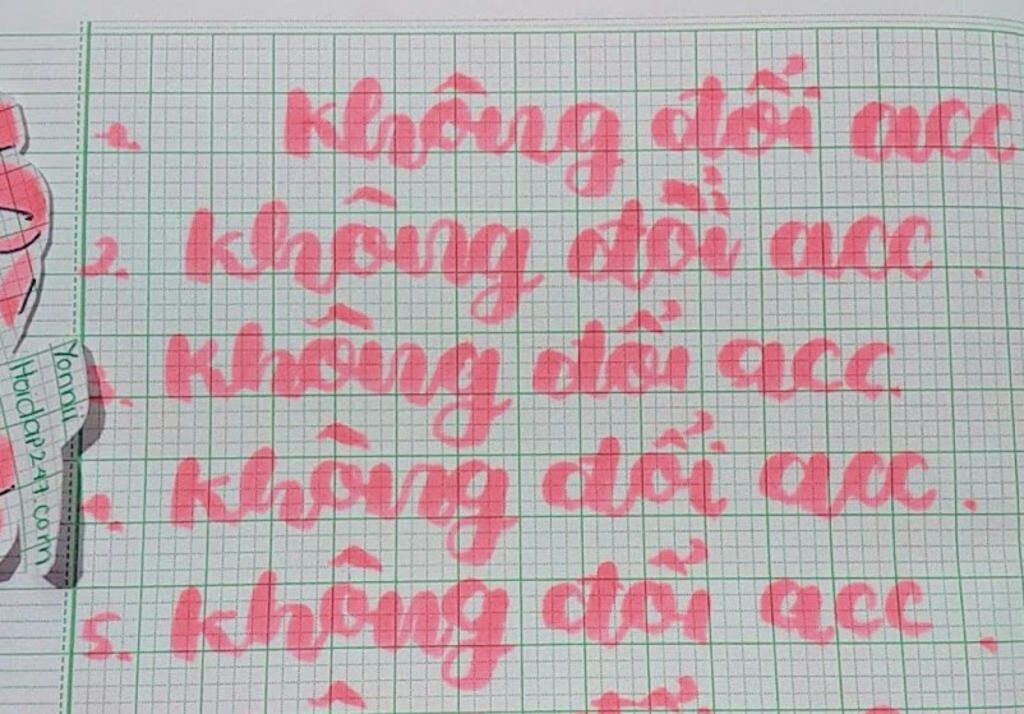 1. không đổi acc
2. không đổi acc.
3. không đổi acc.
4. không đổi acc.
5. không đổi acc.
Yonnii
Hoidap247.com